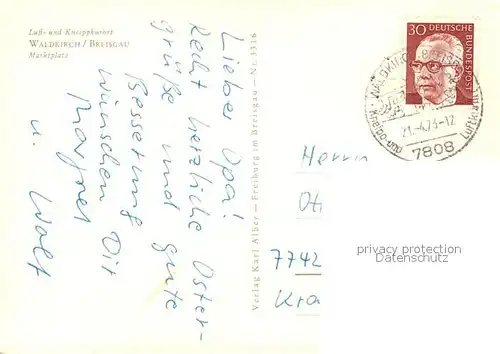 Luft- und Kneippkurort
WALDKIRCH / BREISGAU
Marktplatz
Lieber Opa!
Recht herzliche Oster-
grüße und gute
Besserung
wünschen Dir
Margret
u. Wolf
Verlag Karl Alber — Freiburg im Breisgau — Nr. 3316
30 DEUTSCHE
BUNDESPOST
21.-4.73-12
7808
Kneipp-und Luftkurort
Herrn
Ot
7742
Kra
privacy protection
Datenschutz